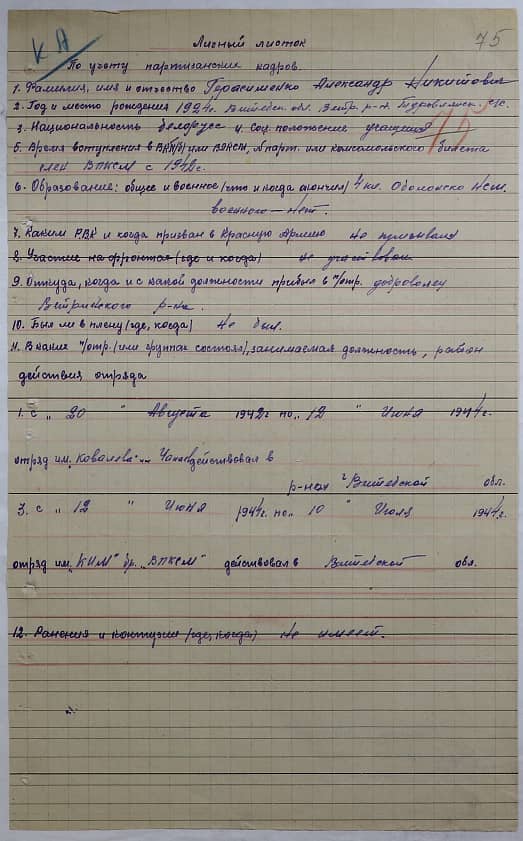 КА
75
Личный листок
По учету партизанские кадров.
1. Фамилия, имя и отчество Герасименко Александр Никитович
2. Год и место рождения 1924г. Витебск. обл. Ветр. р-н. с/с.
3. Национальность белорусс 4. Соц. положение учащийся
5. Время вступления в ВКП(б) или ВЛКСМ, № парт. или комсомольского билета
член ВЛКСМ с 1942г.
6. Образование: общее и военное (что и когда окончил) 7 кл.
военного – нет.
7. Каким РВК и когда призван в Красную Армию не призывался
8. Участие на фронтах (где и когда) не участвовал
9. Откуда, когда и с какой должности прибыл в п/отр. доброволец
Ветринского р-на.
10. Был ли в плену (где, когда) Не был.
11. В каких п/отр. (или группах состоял), занимаемая должность, район
действия отряда
1. с „ 20 " Августа 1942г по „ 12 " Июня 1944г.
отряд им. „Ковалева" действовал в
р-нах Витебской обл.
3. с „ 12 " Июня 1944г. по „ 10 " Июля 1944г.
отряд им. „КИМ" бр. „ВЛКСМ" действовал в Витебской обл.
12. Ранения и контузии (где, когда) Не имеет.